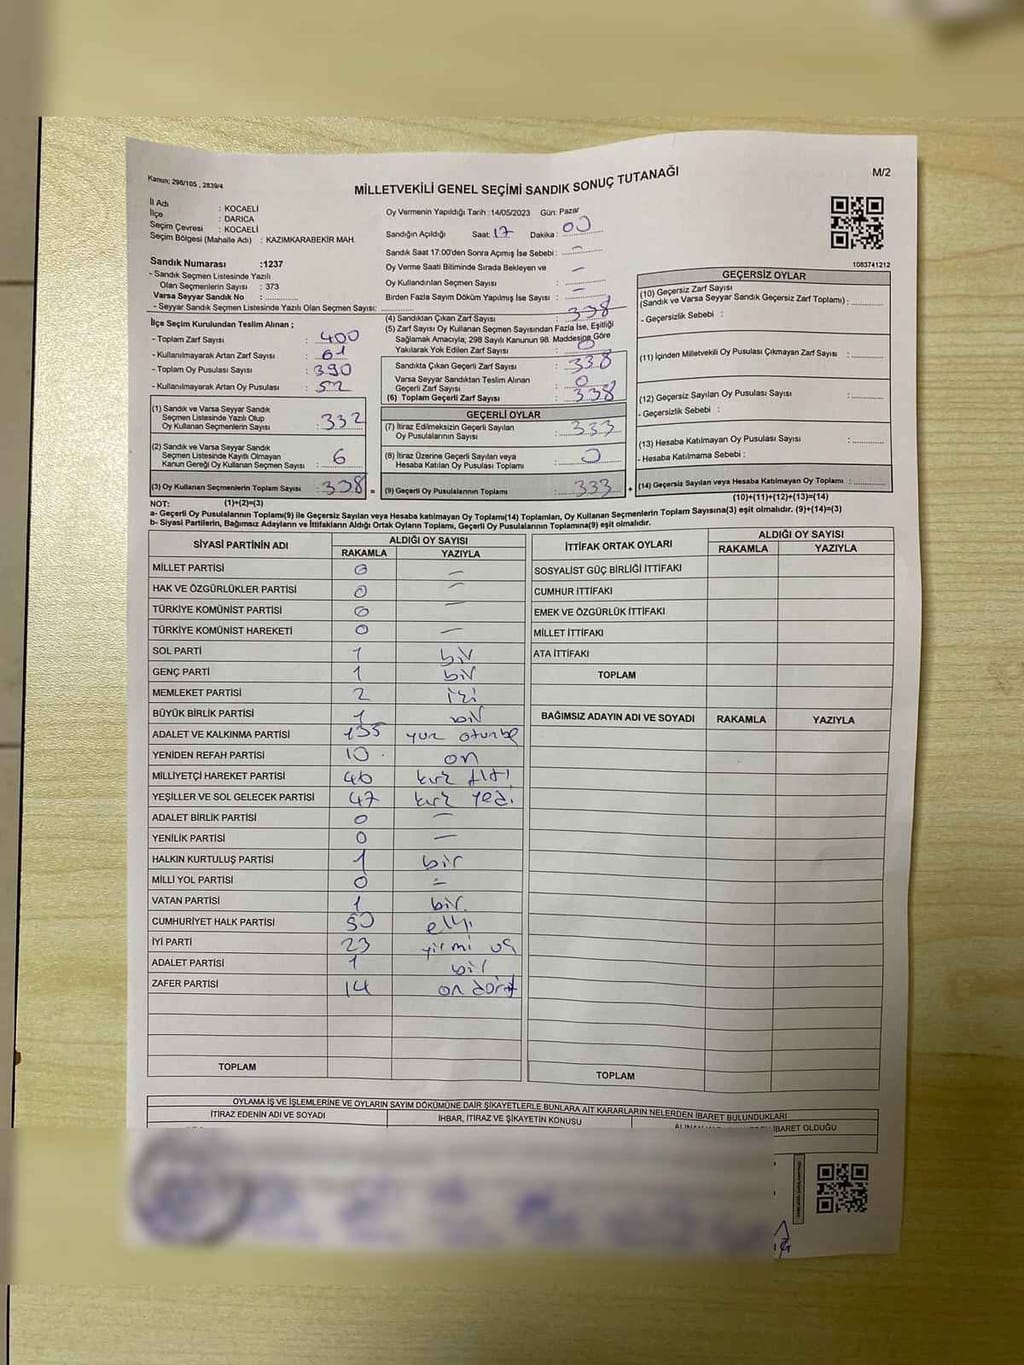 Kanun: 298/105 , 2839/4
MİLLETVEKİLİ GENEL SEÇİMİ SANDIK SONUÇ TUTANAĞI
M/2
İl Adı : KOCAELİ
İlçe : DARICA
Seçim Çevresi : KOCAELİ
Seçim Bölgesi (Mahalle Adı) : KAZIMKARABEKİR MAH.
Sandık Numarası :1237
- Sandık Seçmen Listesinde Yazılı
Olan Seçmenlerin Sayısı : 373
Varsa Seyyar Sandık No :
- Seyyar Sandık Seçmen Listesinde Yazılı Olan Seçmen Sayısı:
İlçe Seçim Kurulundan Teslim Alınan ;
- Toplam Zarf Sayısı : 400
- Kullanılmayarak Artan Zarf Sayısı : 61
- Toplam Oy Pusulası Sayısı : 390
- Kullanılmayarak Artan Oy Pusulası : 52
(1) Sandık ve Varsa Seyyar Sandık
Seçmen Listesinde Yazılı Olup
Oy Kullanan Seçmenlerin Sayısı : 332
(2) Sandık ve Varsa Seyyar Sandık
Seçmen Listesinde Kayıtlı Olmayan
Kanun Gereği Oy Kullanan Seçmen Sayısı : 6
(3) Oy Kullanan Seçmenlerin Toplam Sayısı : 338 =
Oy Vermenin Yapıldığı Tarih :14/05/2023 Gün: Pazar
Sandığın Açıldığı Saat: 17 Dakika : 00
Sandık Saat 17.00'den Sonra Açımış İse Sebebi : –
Oy Verme Saati Bitiminde Sırada Bekleyen ve
Oy Kullandırılan Seçmen Sayısı : –
Birden Fazla Sayım Döküm Yapılmış İse Sayısı : –
(4) Sandıktan Çıkan Zarf Sayısı : 338
(5) Zarf Sayısı Oy Kullanan Seçmen Sayısından Fazla İse, Eşitliği
Sağlamak Amacıyla; 298 Sayılı Kanunun 98. Maddesine Göre
Yakılarak Yok Edilen Zarf Sayısı : 0
Sandıkta Çıkan Geçerli Zarf Sayısı : 338
Varsa Seyyar Sandıktan Teslim Alınan
Geçerli Zarf Sayısı : 0
(6) Toplam Geçerli Zarf Sayısı : 338
GEÇERLİ OYLAR
(7) İtiraz Edilmeksizin Geçerli Sayılan
Oy Pusulalarının Sayısı : 333
(8) İtiraz Üzerine Geçerli Sayılan veya
Hesaba Katılan Oy Pusulası Toplamı : 0
(9) Geçerli Oy Pusulalarının Toplamı : 333 +
1083741212
GEÇERSİZ OYLAR
(10) Geçersiz Zarf Sayısı
(Sandık ve Varsa Seyyar Sandık Geçersiz Zarf Toplamı) :
- Geçersizlik Sebebi :
(11) İçinden Milletvekili Oy Pusulası Çıkmayan Zarf Sayısı :
(12) Geçersiz Sayılan Oy Pusulası Sayısı :
- Geçersizlik Sebebi :
(13) Hesaba Katılmayan Oy Pusulası Sayısı :
- Hesaba Katılmama Sebebi :
(14) Geçersiz Sayılan veya Hesaba Katılmayan Oy Toplamı :
NOT: (1)+(2)=(3) (10)+(11)+(12)+(13)=(14)
a- Geçerli Oy Pusulalarının Toplamı(9) ile Geçersiz Sayılan veya Hesaba Katılmayan Oy Toplamı(14) Toplamları, Oy Kullanan Seçmenlerin Toplam Sayısına(3) eşit olmalıdır. (9)+(14)=(3)
b- Siyasi Partilerin, Bağımsız Adayların ve İttifakların Aldığı Ortak Oyların Toplamı, Geçerli Oy Pusulalarının Toplamına(9) eşit olmalıdır.
SİYASİ PARTİNİN ADI ALDIĞI OY SAYISI
RAKAMLA YAZIYLA
MİLLET PARTİSİ 0 –
HAK VE ÖZGÜRLÜKLER PARTİSİ 0 –
TÜRKİYE KOMÜNİST PARTİSİ 0 –
TÜRKİYE KOMÜNİST HAREKETİ 0 –
SOL PARTİ 1 bir
GENÇ PARTİ 1 bir
MEMLEKET PARTİSİ 2 iki
BÜYÜK BİRLİK PARTİSİ 1 bir
ADALET VE KALKINMA PARTİSİ 135 yüz
YENİDEN REFAH PARTİSİ 10 on
MİLLİYETÇİ HAREKET PARTİSİ 46 kırk altı
YEŞİLLER VE SOL GELECEK PARTİSİ 47 kırk yedi
ADALET BİRLİK PARTİSİ 0 –
YENİLİK PARTİSİ 0 –
HALKIN KURTULUŞ PARTİSİ 1 bir
MİLLİ YOL PARTİSİ 0 –
VATAN PARTİSİ 1 bir
CUMHURİYET HALK PARTİSİ 50 elli
İYİ PARTİ 23 yirmi üç
ADALET PARTİSİ 1 bir
ZAFER PARTİSİ 14 on dört
TOPLAM
İTTİFAK ORTAK OYLARI ALDIĞI OY SAYISI
RAKAMLA YAZIYLA
SOSYALİST GÜÇ BİRLİĞİ İTTİFAKI
CUMHUR İTTİFAKI
EMEK VE ÖZGÜRLÜK İTTİFAKI
MİLLET İTTİFAKI
ATA İTTİFAKI
TOPLAM
BAĞIMSIZ ADAYIN ADI VE SOYADI RAKAMLA YAZIYLA
TOPLAM
OYLAMA İŞ VE İŞLEMLERİNE VE OYLARIN SAYIM DÖKÜMÜNE DAİR ŞİKAYETLERLE BUNLARA AİT KARARLARIN NELERDEN İBARET BULUNDUKLARI
İTİRAZ EDENİN ADI VE SOYADI İHBAR, İTİRAZ VE ŞİKAYETİN KONUSU İBARET OLDUĞU